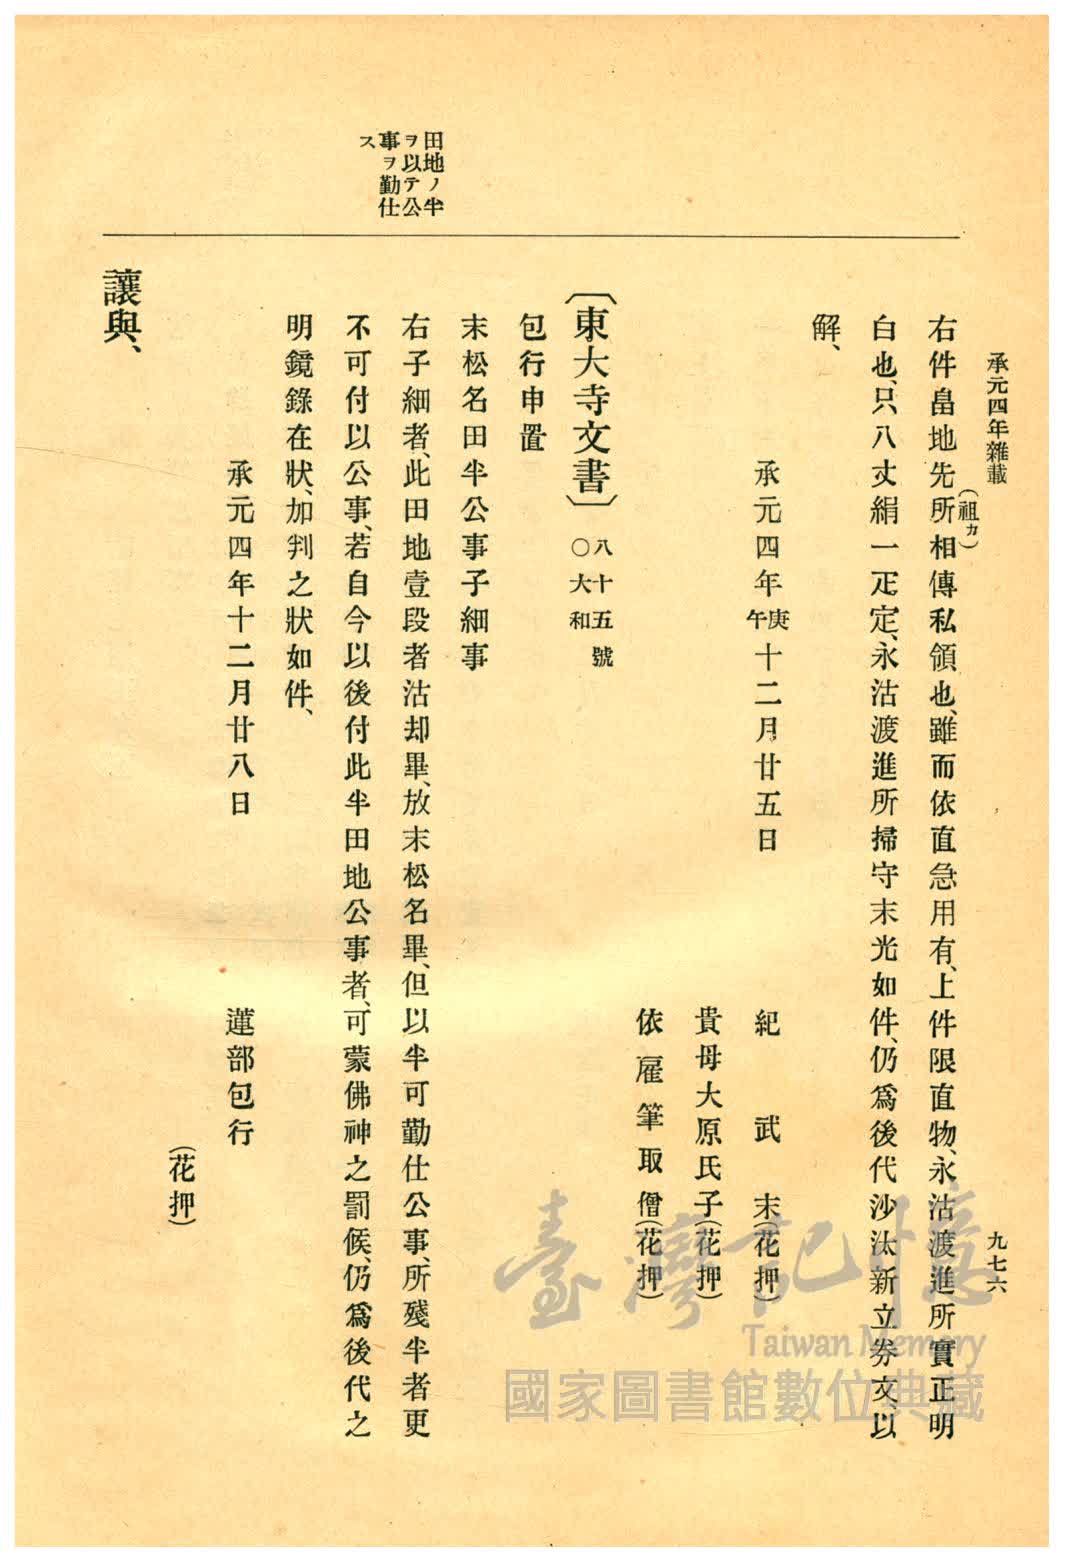 承元四年雜載
九七六
右件畠地先所相傳私領也、雖而依直急用有、上件限直物、永沽渡進所實正明
(祖カ)
白也、只八丈絹一疋定、永沽渡進所掃守末光如件、仍爲後代沙汰新立券文、以
解、
承元四年庚午十二月廿五日
紀武末(花押)
貴母大原氏子(花押)
依雇筆取僧(花押)
〔東大寺文書〕八十五號
○大和
包行申置
末松名田半公事子細事
右子細者、此田地壹段者沽却畢、放末松名畢、但以半可勤仕公事、所殘半者更
不可付以公事、若自今以後付此半田地公事者、可蒙佛神之罰候、仍爲後代之
明鏡錄在狀、加判之狀如件、
承元四年十二月廿八日
蓮部包行
(花押)
讓與、
田地ノ半
ヲ以テ公
事ヲ勤仕
ス
臺灣記憶
Taiwan Memory
國家圖書館數位典藏